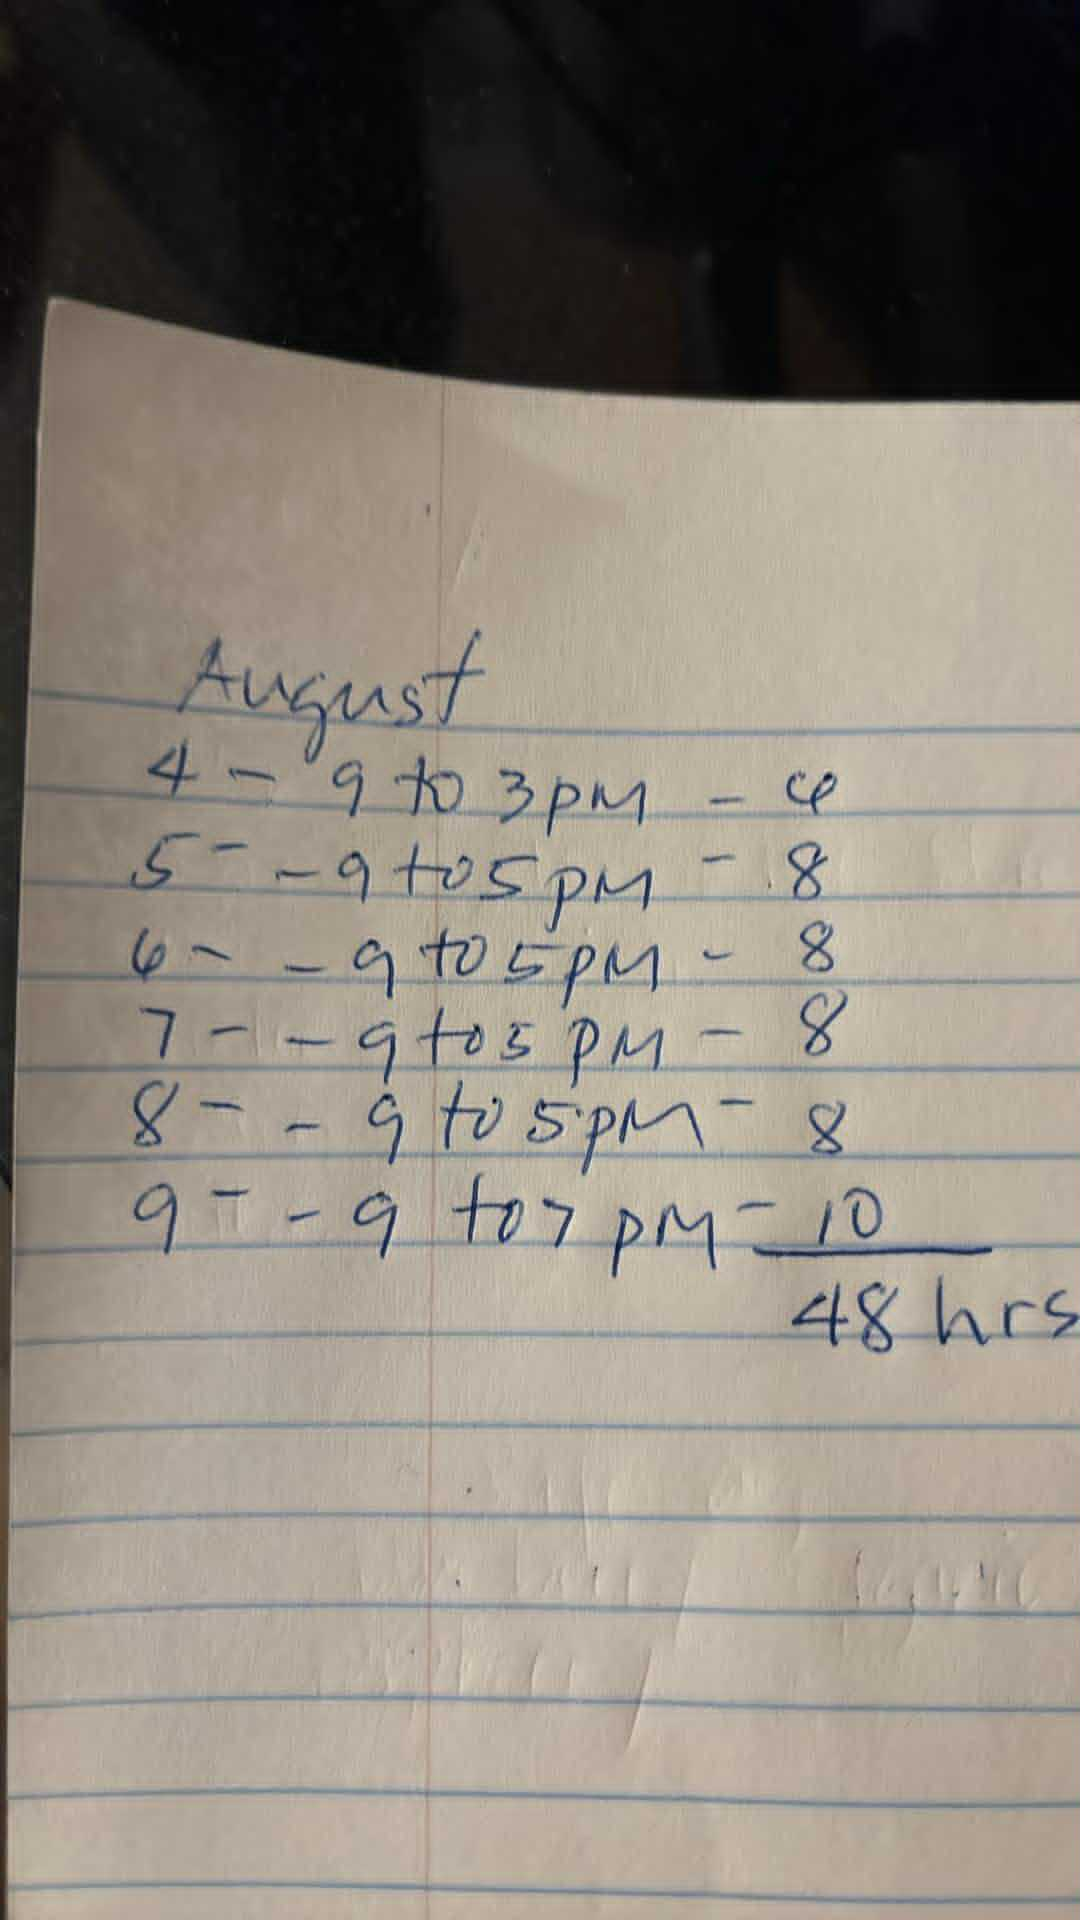 August
4 - 9 to 3 pM - 6
5 - - 9 to 5 pM - 8
6 - - 9 to 5 pM - 8
7 - - 9 to 5 pM - 8
8 - - 9 to 5 pM - 8
9 - - 9 to 7 pM - 10
48 hrs